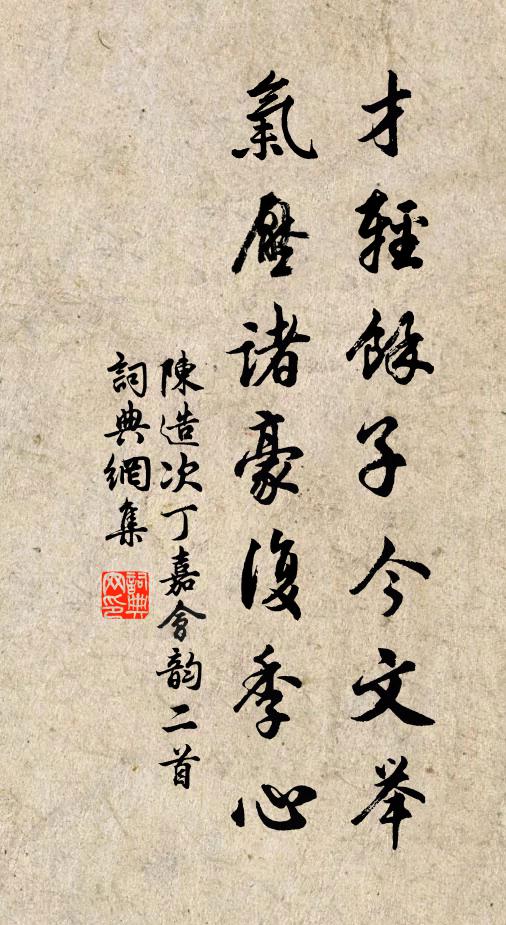 才輕餘子今文举
氣壓諸豪復季心
陳造次丁嘉會韵二首
詞典網集
詞典网印